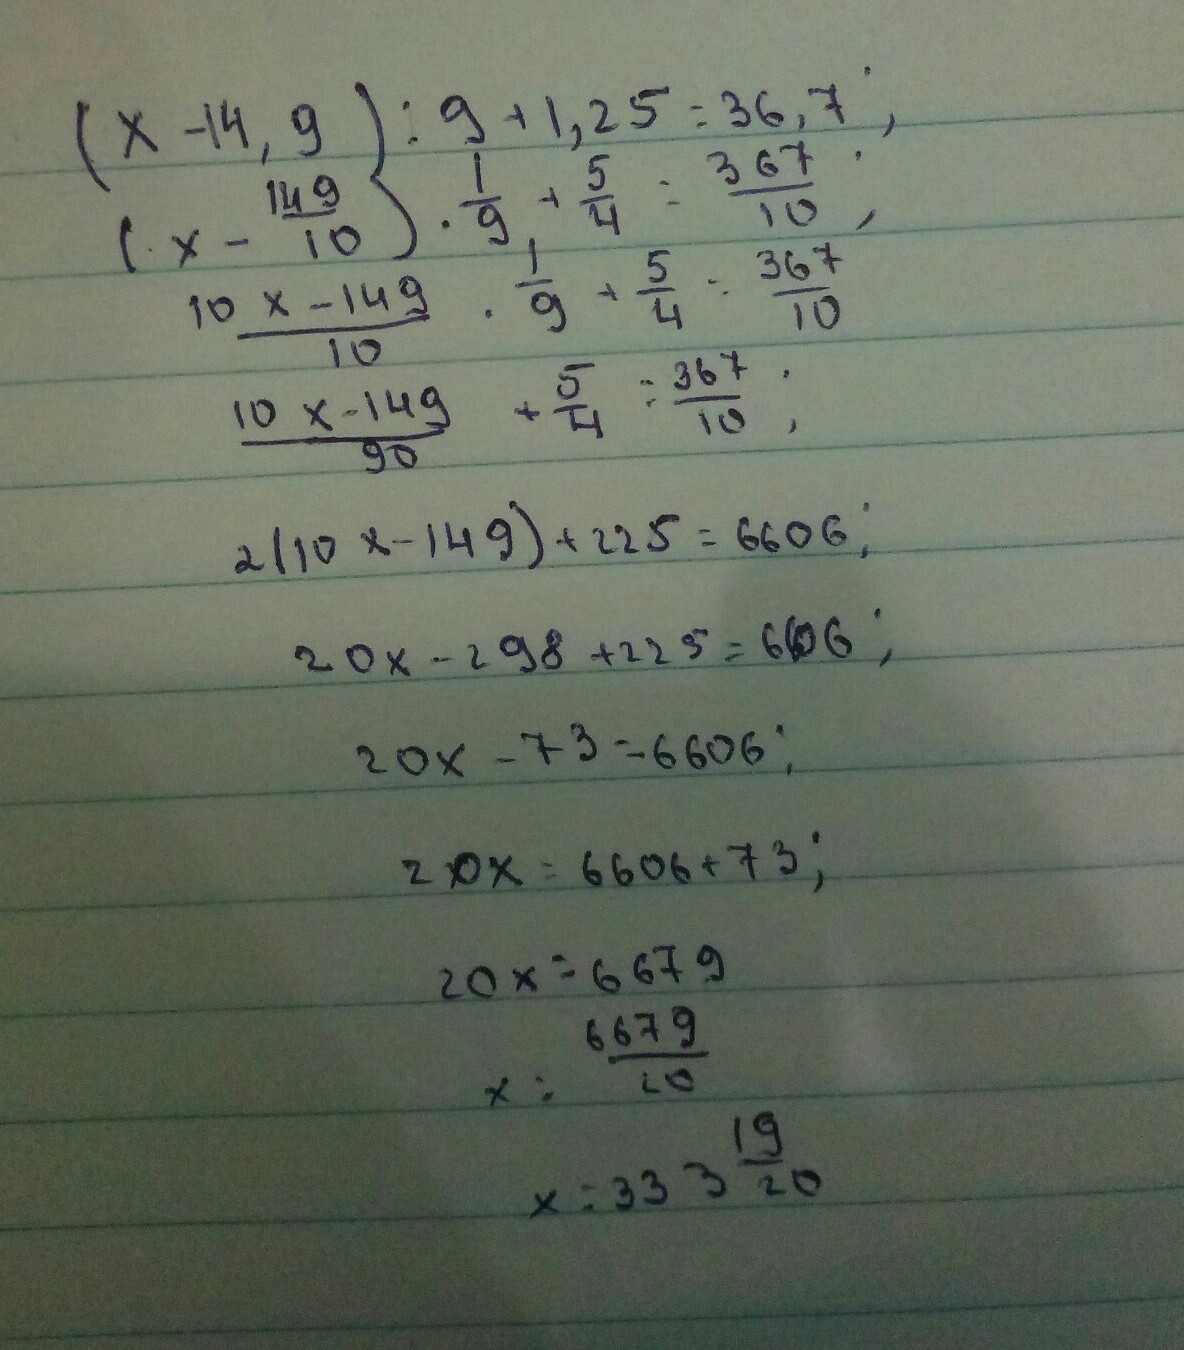 (x - 14,9) : 9 + 1,25 = 36,7;
(x - 149/10) · 1/9 + 5/4 = 367/10;
10x - 149/10 · 1/9 + 5/4 = 367/10
10x - 149/90 + 5/4 = 367/10;
2(10x - 149) + 225 = 6606;
20x - 298 + 225 = 6606;
20x - 73 = 6606;
20x = 6606 + 73;
20x = 6679
x = 6679/20
x = 333 19/20